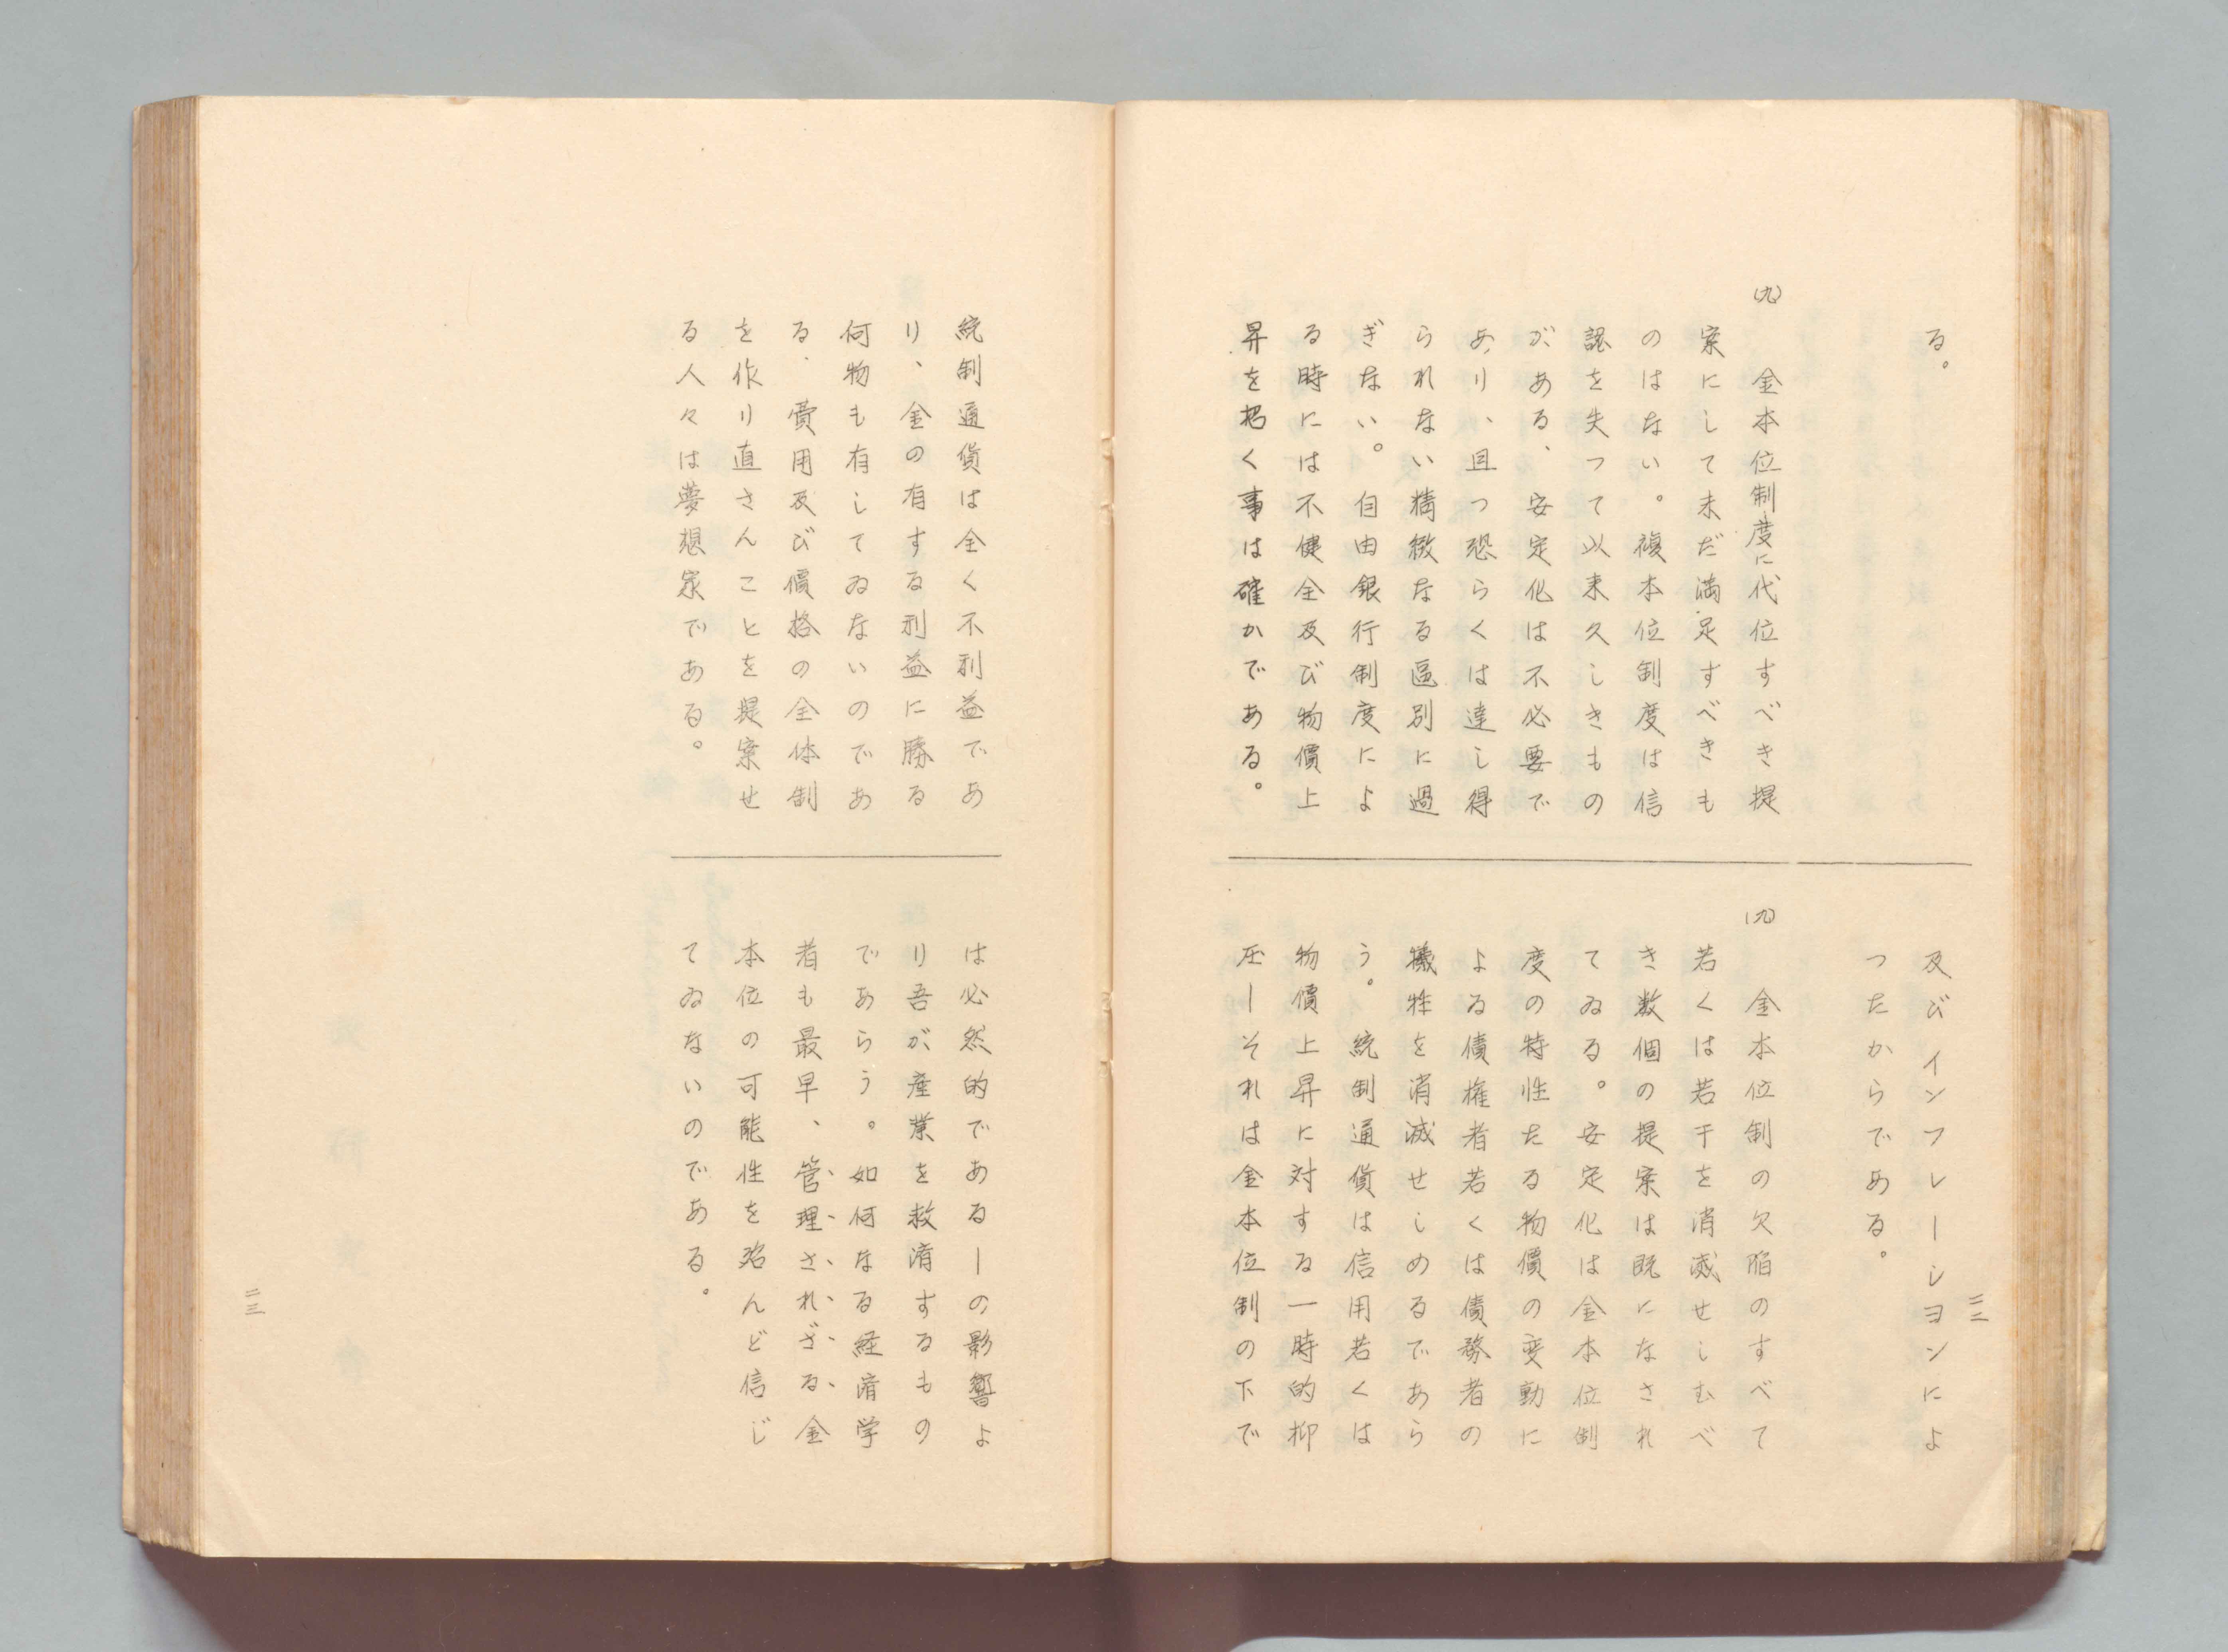 る。
(九)
金本位制度に代位すべき提
案にして未だ満足すべきも
のはない。複本位制度は信
認を失つて以来久しきもの
がある、安定化は不必要で
あり、且つ恐らくは達し得
られない精緻なる區別に過
ぎない。自由銀行制度によ
る時には不健全及び物價上
昇を招く事は確かである。
二二
及びインフレーシヨンによ
つたからである。
(九)
金本位制の欠陥のすべて
若くは若干を消滅せしむべ
き数個の提案は既になされ
てゐる。安定化は金本位制
度の特性たる物價の変動に
よる債権者若くは債務者の
犠牲を消滅せしめるであら
う。統制通貨は信用若くは
物價上昇に対する一時的抑
圧ーそれは金本位制の下で
統制通貨は全く不利益であ
り、金の有する利益に勝る
何物も有してゐないのであ
る．費用及び價格の全体制
を作り直さんことを提案せ
る人々は夢想家である。
は必然的であるーの影響よ
り吾が産業を救済するもの
であらう。如何なる経済学
者も最早、管理されざる金
本位の可能性を殆んど信じ
てゐないのである。
二三